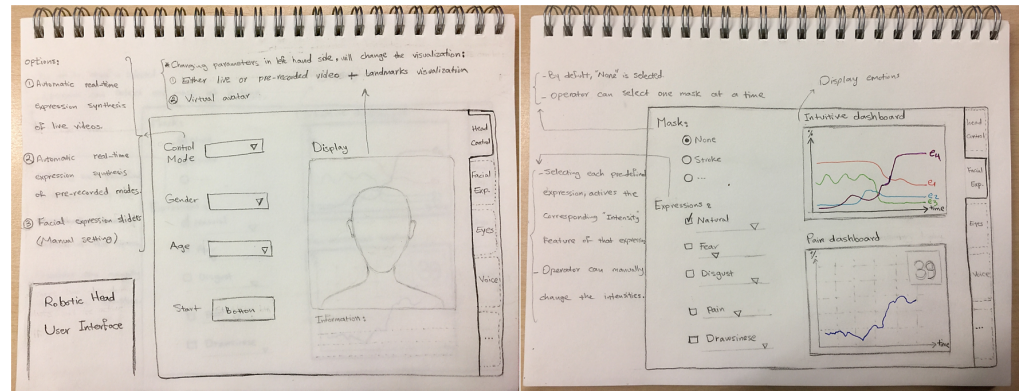 options:
① Automatic real-time
expression synthesis
of live videos.
② Automatic real-time
expression synthesis
of pre-recorded modes.
③ Facial expression sliders
(Manual setting)
* Changing parameters in left hand side, will change the visualization:
① Either live or pre-recorded video + Landmarks visualization
② Virtual avatar
Control
Mode
Gender
Age
Start
Display
Information:
Head
Control
Facial
Exp.
Eyes
Voice
...
Robotic Head
User Interface
- By default, "None" is selected
- Operator can select one mask at a time
- Selecting each predefined
expression, actives the
Corresponding "Intensity"
Feature of that express
- Operator can manually
change the intensities.
Mask:
None
Stroke
...
Expressions:
Natural
Fear
Disgust
Pain
Drawsinese
Display emotions
Intuitive dashboard
%
e4
e1
e2
e3
time
Pain dashboard
%
39
time
Head
Control
Facial
Exp.
Eyes
Voice
...